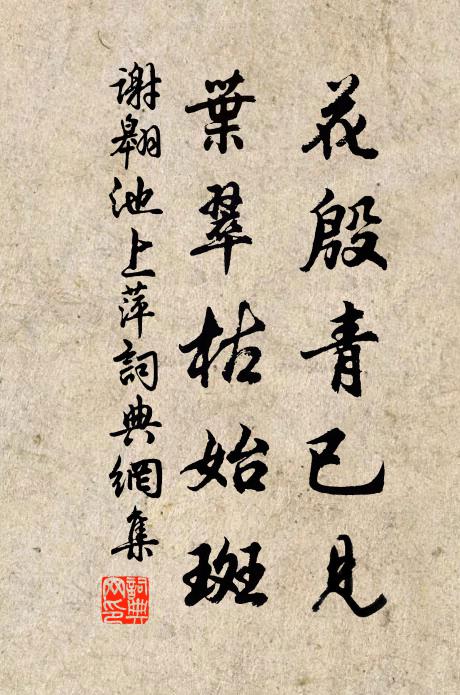 花殷青已見
葉翠枯始斑
謝翱池上萍詞典網集
詞典
文化